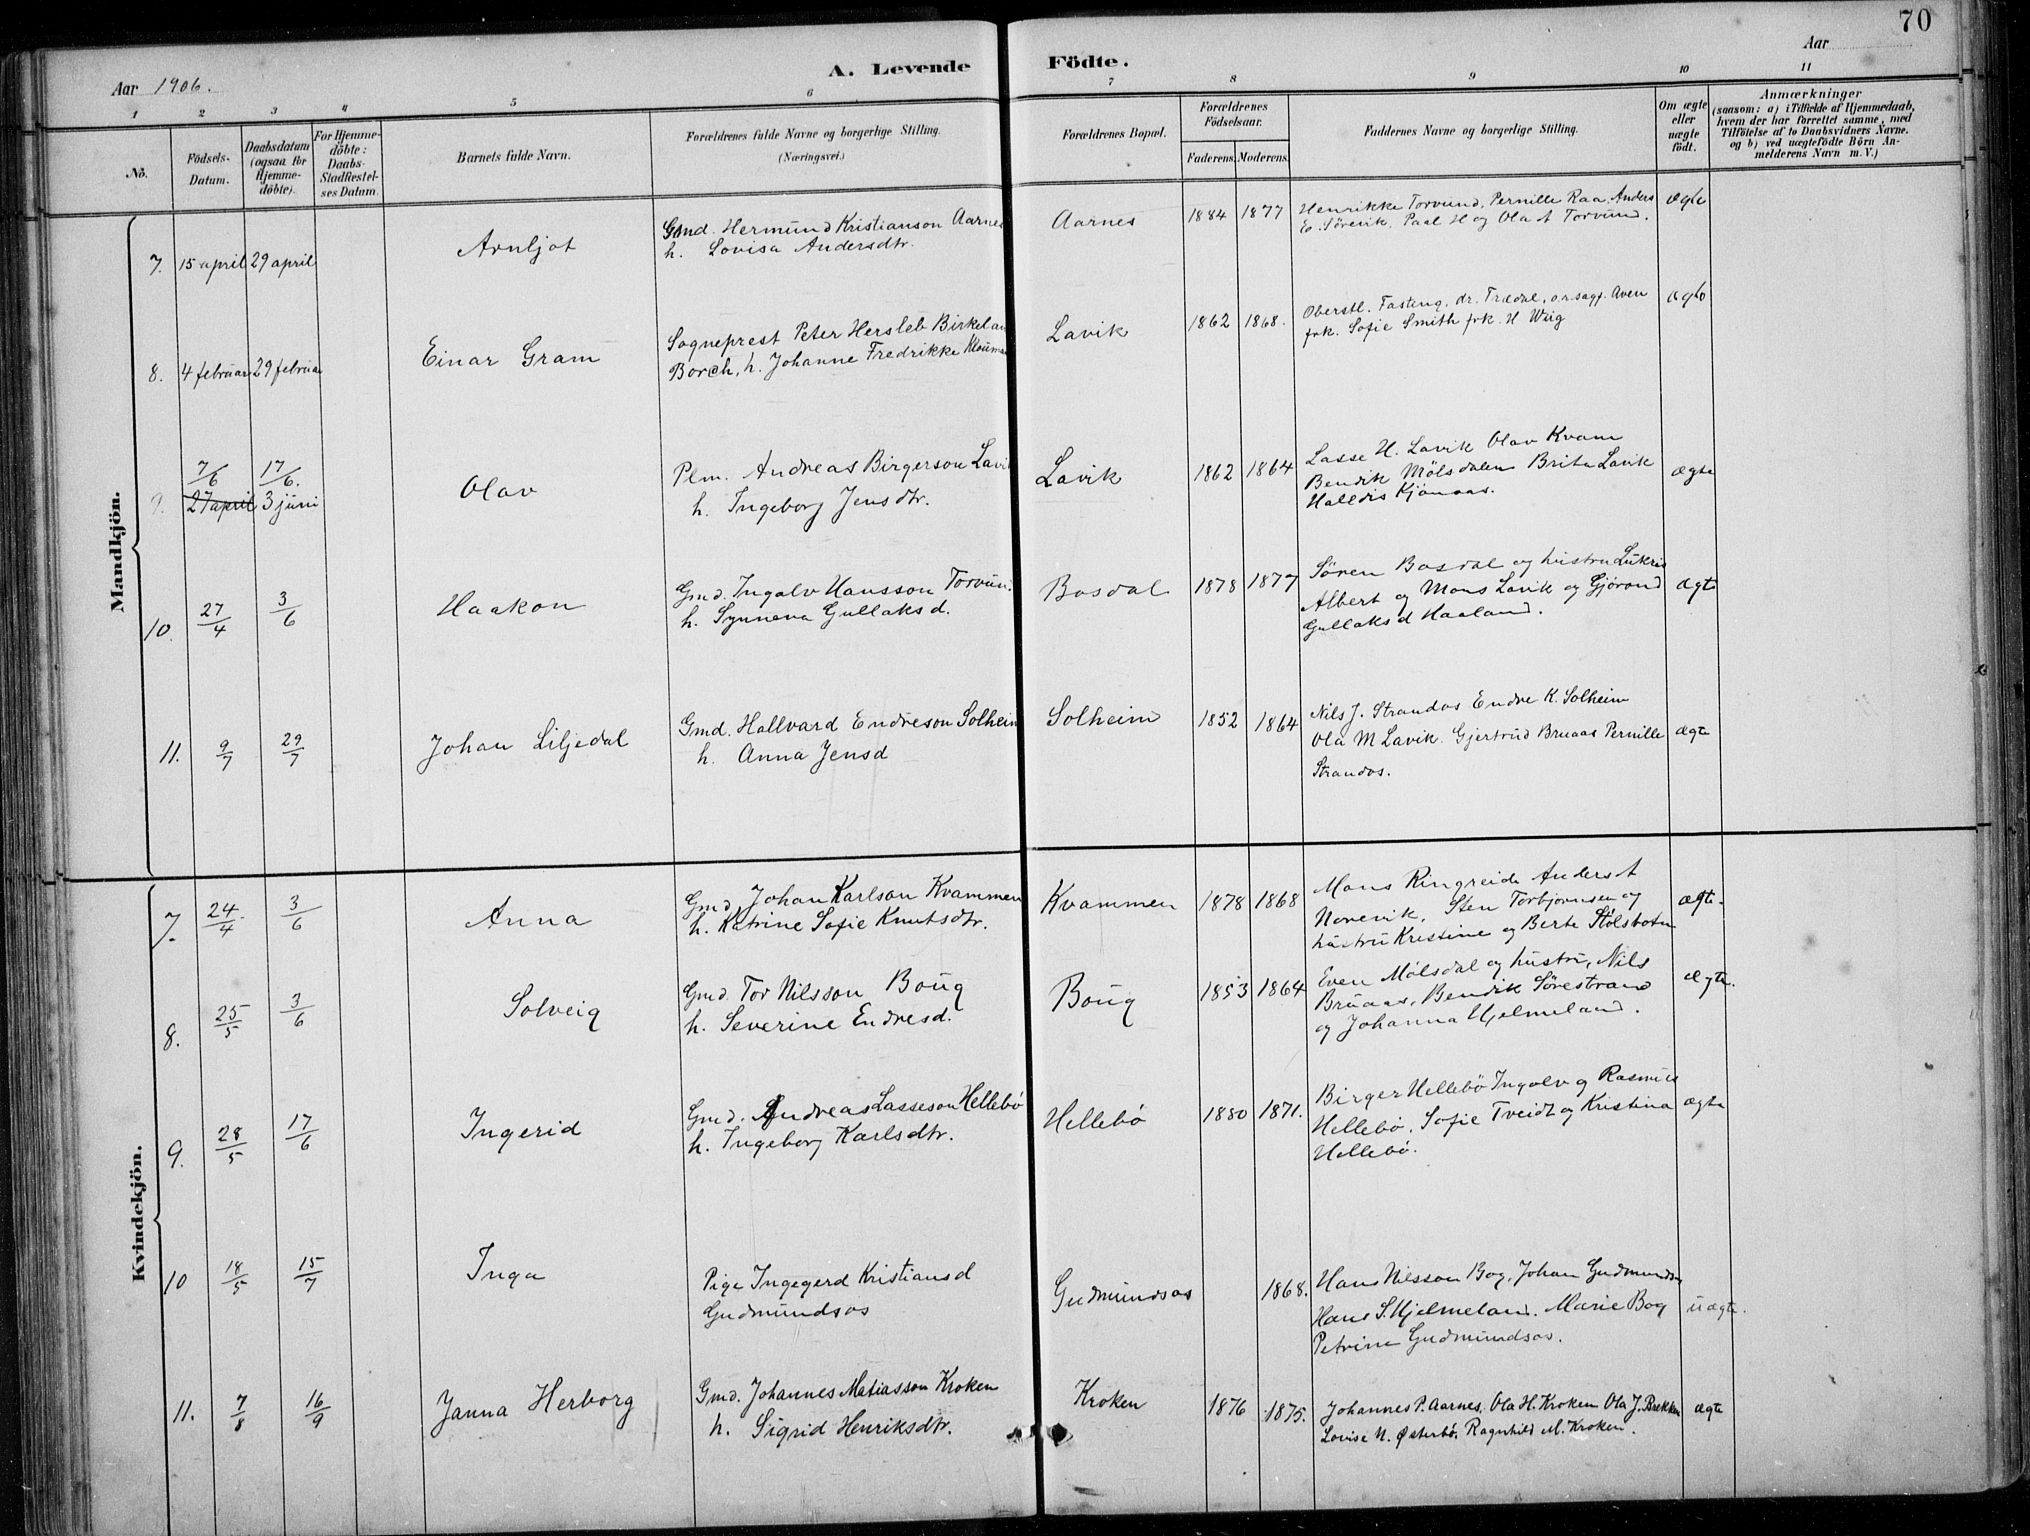 70
Aar 1906.
A. Levende Födte.
Aar
1 2 3 4 5 6 7 8 9 10 11
No.
Födsels-Datum.
Daabsdatum (ogsaa for Hjemme-döbte).
For Hjemme-döbte: Daabs-Stadfæstel-ses Datum.
Barnets fulde Navn.
Forældrenes fulde Navne og borgerlige Stilling.
(Næringsvei.)
Forældrenes Bopæl.
Forældrenes Födselsaar.
Faderens. Moderens.
Faddernes Navne og borgerlige Stilling.
Om ægte eller uægte födt.
Anmærkninger
(saasom: a) i Tilfælde af Hjemmedaab,
hvem der har forrettet samme, med
Tilföielse af to Daabsvidners Navne.
og b) ved uægtefödte Börn An-
melderens Navn m. V.)
Mandkjön.
7. 15 april 29 april Arnljot
Gmd. Hermund Kristianson Aarnes
h. Lovisa Andersdtr.
Aarnes 1884 1877
Henrikke Torvund, Pernille Raa, Anders
E. Sörevik, Paal H og Ola A Torvund.
ægte
8. 4 februar 29 februar Einar Gram
Sogneprest Peter Hersleb Birkeland
Borch, h. Johanne Fredrikke
Lavik 1862 1868.
Oberstl. Fasting, dr. Trædal, o.r.sagf. Aven
frk. Sofie Smith frk. H Wiig
ægte
9. 7/6 17/6.
27 april 3 juni
Olav
Plm. Andreas Birgerson Lavik
h. Ingeborg Jensdtr.
Lavik 1862 1864
Lasse H. Lavik Olav Kvam
Bendik Mölsdalen Brita Lavik
Halldis Kjönaas.
ægte
10. 27/4 3/6 Haakon
Gmd. Ingolv Hansson Torvun.
h. Synneva Gullaksd.
Bosdal 1878 1877
Sören Bosdal og hustru Lukris
Albert og Mons Lavik og Gjörond
Gullaksd Haaland.
ægte
11. 9/7 29/7 Johan Liljedal
Gmd. Hallvard Endreson Solheim
h. Anna Jensd
Solheim 1852 1864
Nils J. Strandos Endre K. Solheim
Ola M Lavik. Gjertrud Bruaas Pernille
Strandos.
ægte
Kvindekjön.
7. 24/4. 3/6 Anna
Gmd. Johan Karlson Kvammen
h. Katrine Sofie Knutsdtr.
Kvammen 1878 1868
Mons Ringreide Anders A
Norevik, Sten Torbjornsen og
hustru Kristine og Berte Stölsbotn
ægte.
8. 25/5 3/6 Solveig
Gmd. Tor Nilsson Böug
h. Severine Endresd.
Böug 1853 1864
Even Mölsdal og hustru, Nils
Bruaas, Bendik Sörestrand
og Johanna Hjelmeland.
ægte.
9. 28/5 17/6 Ingerid
Gmd. Andreas Lasseson Hellebö
h. Ingeborg Karlsdtr.
Hellebö 1880 1871.
Birger Hellebö Ingolv og Rasmus
Hellebö, Sofie Tveidt og Kristina
Hellebö.
ægte
10 18/5 15/7 Inga
Pige Ingegerd Kristiansd
Gudmundsos
Gudmundsos 1868.
Hans Nilsson Bog, Johan Gudmundsos
Hans S. Hjelmeland. Marie Bog
Petrine Gudmundsos.
uægte.
11. 7/8 16/9 Janna Herborg
Gmd. Johannes Matiasson Kroken
h. Sigrid Henriksdtr.
Kroken 1876 1875.
Johannes P. Aarnes, Ola H. Kroken Ola J. Brekken
Lovise N. Østerbö, Ragnhild M. Kroken.
ægte